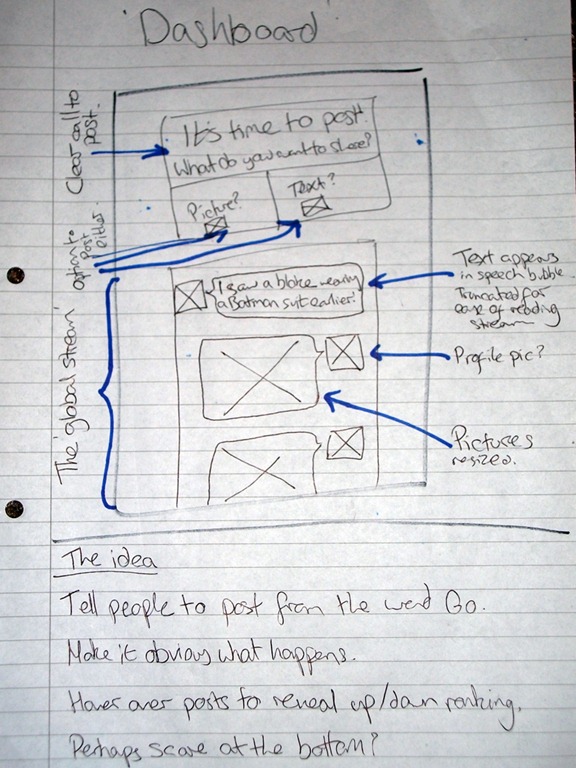 Dashboard
Clear call to
post.
It's time to post.
What do you want to share?
Picture?
Text?
option to
post
either.
I saw a bloke wearing
a Batman suit earlier!
Text appears
in speech bubble
Truncated for
ease of reading
stream
The 'global stream'
Profile pic?
Pictures
resized.
The idea
Tell people to post from the word Go.
Make it obvious what happens.
Hover over posts to reveal up/down ranking.
Perhaps score at the bottom?